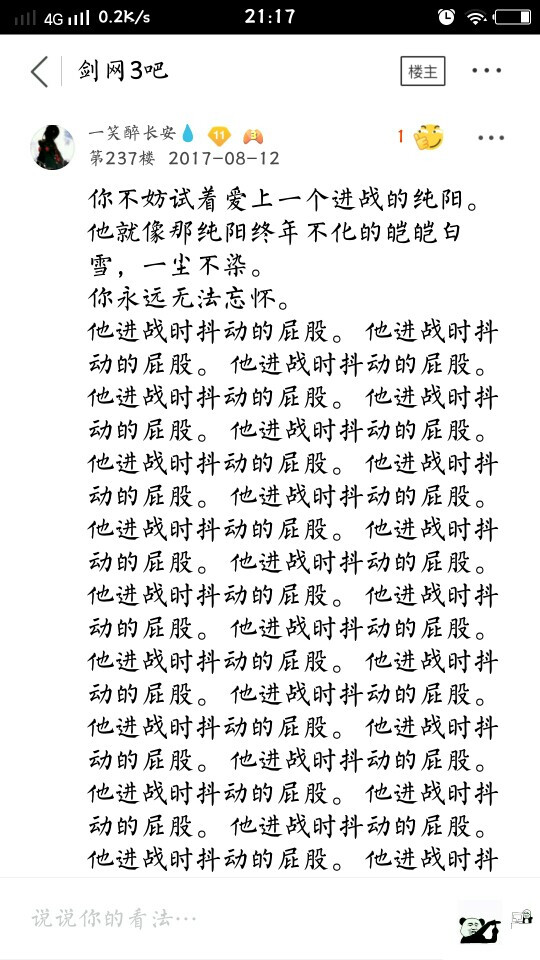 4G 0.2K/s 21:17
剑网3吧 楼主
一笑醉长安 11 3 1
第237楼 2017-08-12
你不妨试着爱上一个进战的纯阳。
他就像那纯阳终年不化的皑皑白
雪，一尘不染。
你永远无法忘怀。
他进战时抖动的屁股。 他进战时抖
动的屁股。 他进战时抖动的屁股。
他进战时抖动的屁股。 他进战时抖
动的屁股。 他进战时抖动的屁股。
他进战时抖动的屁股。 他进战时抖
动的屁股。 他进战时抖动的屁股。
他进战时抖动的屁股。 他进战时抖
动的屁股。 他进战时抖动的屁股。
他进战时抖动的屁股。 他进战时抖
动的屁股。 他进战时抖动的屁股。
他进战时抖动的屁股。 他进战时抖
动的屁股。 他进战时抖动的屁股。
他进战时抖动的屁股。 他进战时抖
动的屁股。 他进战时抖动的屁股。
他进战时抖动的屁股。 他进战时抖
动的屁股。 他进战时抖动的屁股。
他进战时抖动的屁股。 他进战时抖
说说你的看法…